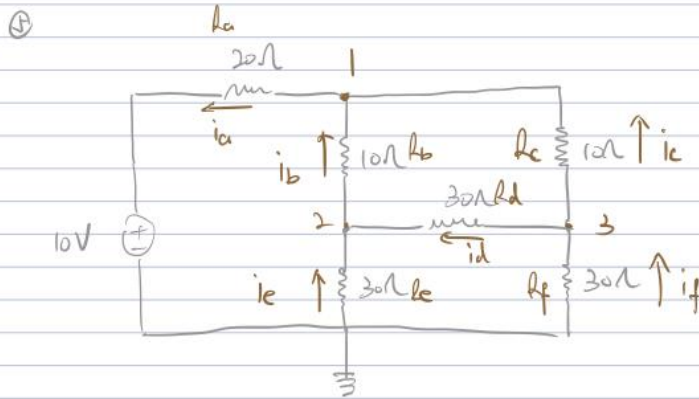 ⑤
Ra
20Ω
1
ia
ib
10Ω Rb
Rc
10Ω
ic
30Ω Rd
2
3
10V
+
id
ie
30Ω Re
Rf
30Ω
if